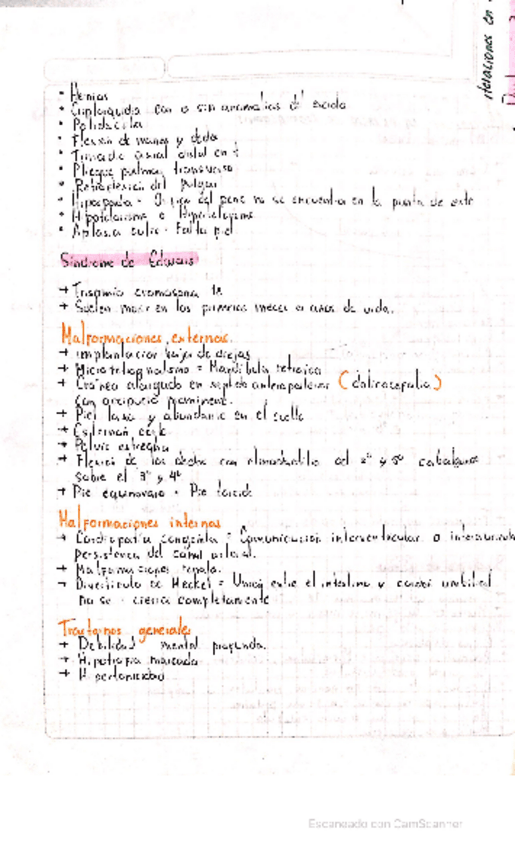 • Hernias
• Criptorquidia con o sin anomalias d' escroto
• Polidactilia
• Flexión de manos y dedos
• Triradio axial distal en t
• Pliegue palmar transverso
• Retroflexión del pulgar
• Hipospadia = Origen del pene no se encuentra en la punta de este
• Hipotelorismo o Hipertelorismo
• Aplasia cutis = Falta piel
Síndrome de Edwars
→ Trisomía cromosoma 18
→ Suelen morir en los primeros meses o años de vida.
Malformaciones externas.
→ implantacion baja de orejas
→ Microretrognatismo = Mandíbula retraida
→ Cráneo alargado en sentido anteroposterior (dolicocefalia)
con occipucio prominente.
→ Piel laxa y abundante en el cuello
→ Esternón corto
→ Pelvis estrecha
→ Flexión de los dedos con del 2° y 5° cabalgando
sobre el 3° y 4°
→ Pie equinovaro = Pie torcido
Malformaciones internas
→ Cardiopatia congénita = Comunicación interventricular o
persistencia del canal arterial.
→ Malformaciones renales.
→ Divertículo de Meckel = Unión entre el intestino y cordón umbilical
no se cierra completamente
Trastornos generales
→ Debilidad mental profunda.
→ Hipotrofia marcada
→ Hipertonicidad
Escaneado con CamScanner